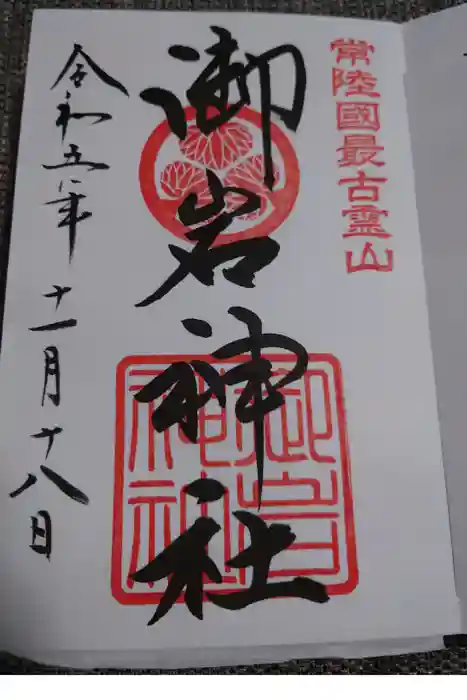 常陸國最古霊山
御岩神社
御岩神社
令和五年 十一月十八日